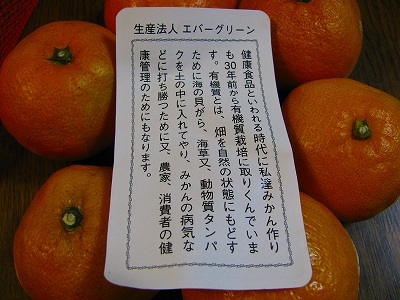 生産法人 エバーグリーン
健康食品といわれる時代に私達みかん作り
も30年前から有機質栽培に取りくんでいま
す。有機質とは、畑を自然の状態にもどす
ために海の貝がら、海草又、動物質タンパ
クを土の中に入れてやり、みかんの病気な
どに打ち勝つために又、農家、消費者の健
康管理のためにもなります。